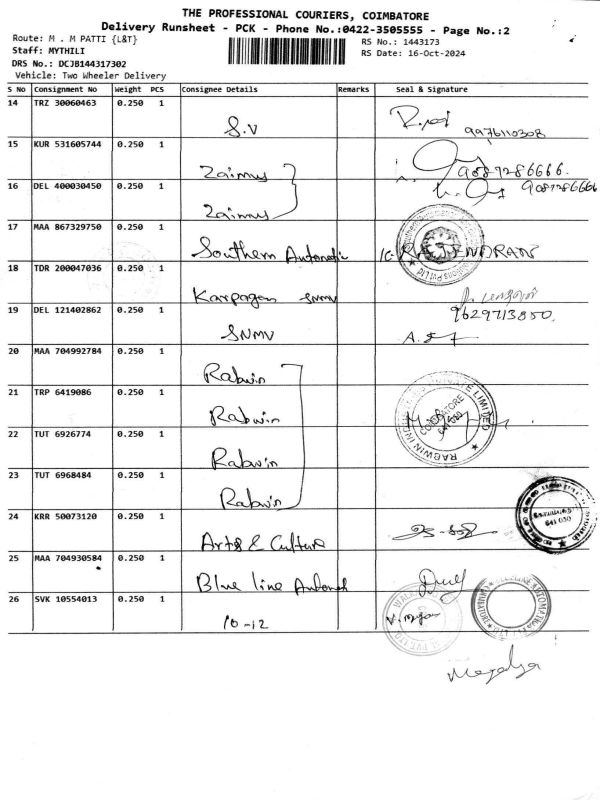 THE PROFESSIONAL COURIERS, COIMBATORE
Delivery Runsheet - PCK - Phone No.:0422-3505555 - Page No.:2
Route: M . M PATTI {L&T}
RS No.: 1443173
Staff: MYTHILI
RS Date: 16-Oct-2024
DRS No.: DCJB144317302
Vehicle: Two Wheeler Delivery
S No Consignment No Weight PCS Consignee Details Remarks Seal & Signature
14 TRZ 30060463 0.250 1
S.V 9976110308
15 KUR 531605744 0.250 1
Zaimus 9087286666.
16 DEL 400030450 0.250 1
Zaimus 9087286666
17 MAA 867329750 0.250 1
Southern Automatic RAJENDRAN
18 TDR 200047036 0.250 1
Karpagam SNMV
19 DEL 121402862 0.250 1
SNMV 9629713850.
20 MAA 704992784 0.250 1
Rabwin
21 TRP 6419086 0.250 1
Rabwin
RABWIN INDUSTRIES PRIVATE LIMITED
COIMBATORE
22 TUT 6926774 0.250 1
Rabwin
23 TUT 6968484 0.250 1
Rabwin
24 KRR 50073120 0.250 1
641 050
Arts & Culture
25 MAA 704930584 0.250 1
Blue line Automa
26 SVK 10554013 0.250 1
10-12